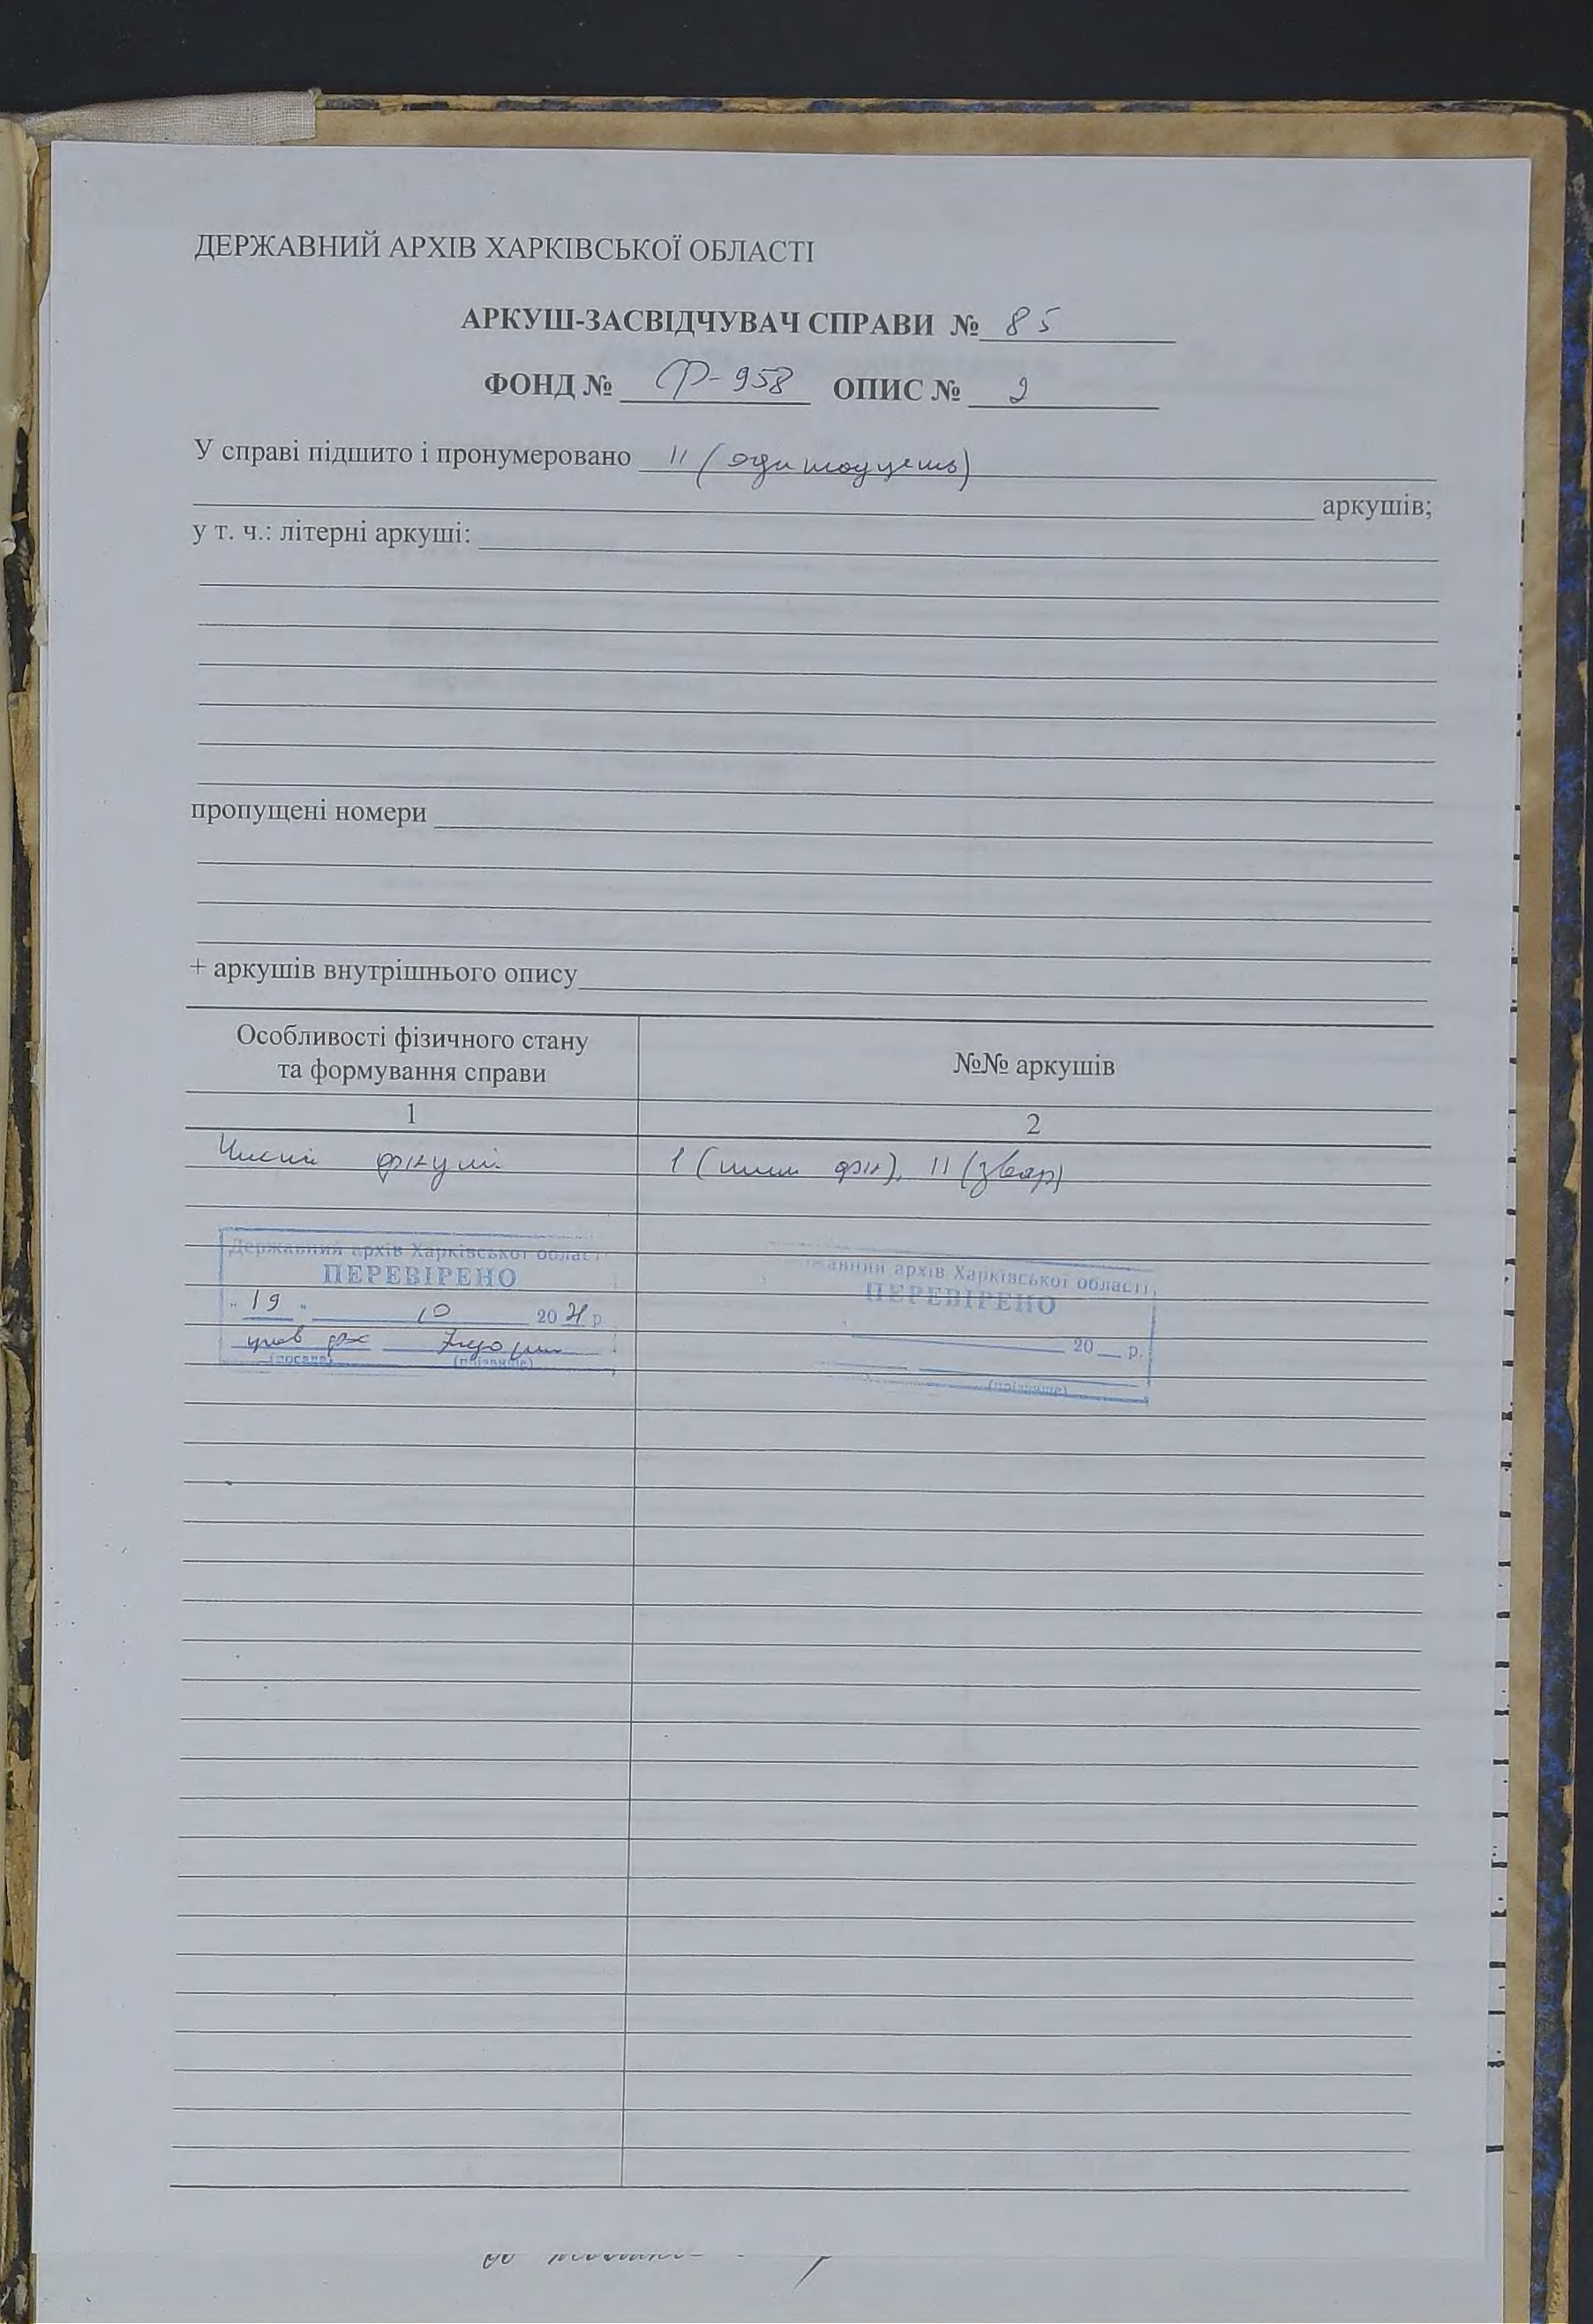 ДЕРЖАВНИЙ АРХІВ ХАРКІВСЬКОЇ ОБЛАСТІ
АРКУШ-ЗАСВІДЧУВАЧ СПРАВИ № 85
ФОНД № Р-958 ОПИС № 2
У справі підшито і пронумеровано 11 (одинадцять)
аркушів;
у т. ч.: літерні аркуші:
пропущені номери
+ аркушів внутрішнього опису
Особливості фізичного стану
та формування справи
№№ аркушів
1
2
Чисті аркуші
1 (тит арк), 11 (звор)
Державний архів Харківської област
ПЕРЕВІРЕНО
"19" 10 2021 р
(посада) (прізвище)
жавний архів Харківської області
ПЕРЕВІРЕНО
20__ р.
(прізвище)